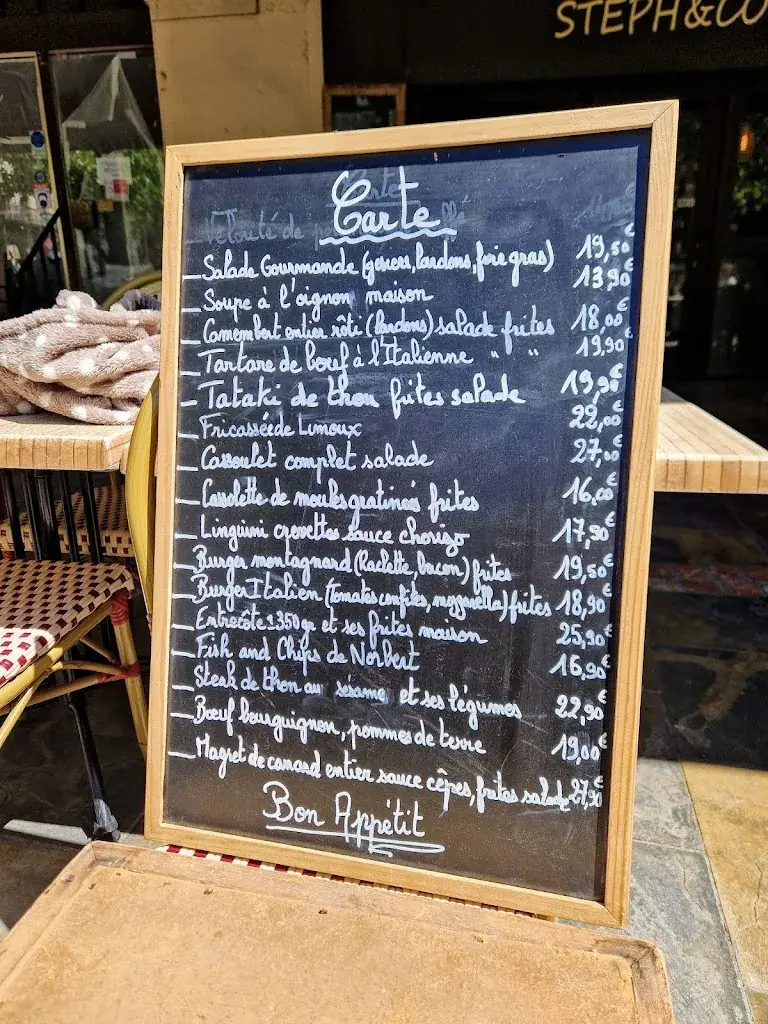 STEPH&CO
Carte
Velouté de
Salade Gourmande (gésiers, lardons, foie gras) 19,50€
Soupe à l'oignon maison 13,90€
Camembert entier rôti (lardons) salade frites 18,00€
Tartare de bœuf à l'Italienne " " 19,90€
Tataki de thon frites salade 19,90€
Fricassée de Limoux 22,00€
Cassoulet complet salade 27,00€
Cassolette de moules gratinées frites 16,00€
Linguini crevettes sauce chorizo 17,90€
Burger montagnard (Raclette, bacon) frites 19,50€
Burger Italien (Tomates confites, mozzarella) frites 18,90€
Entrecôte ± 350gr et ses frites maison 25,90€
Fish and Chips de Norbert 16,90€
Steak de thon au sésame et ses légumes 22,90€
Bœuf bourguignon, pommes de terre 19,00€
Magret de canard entier sauce cêpes, frites salade 27,90€
Bon Appétit